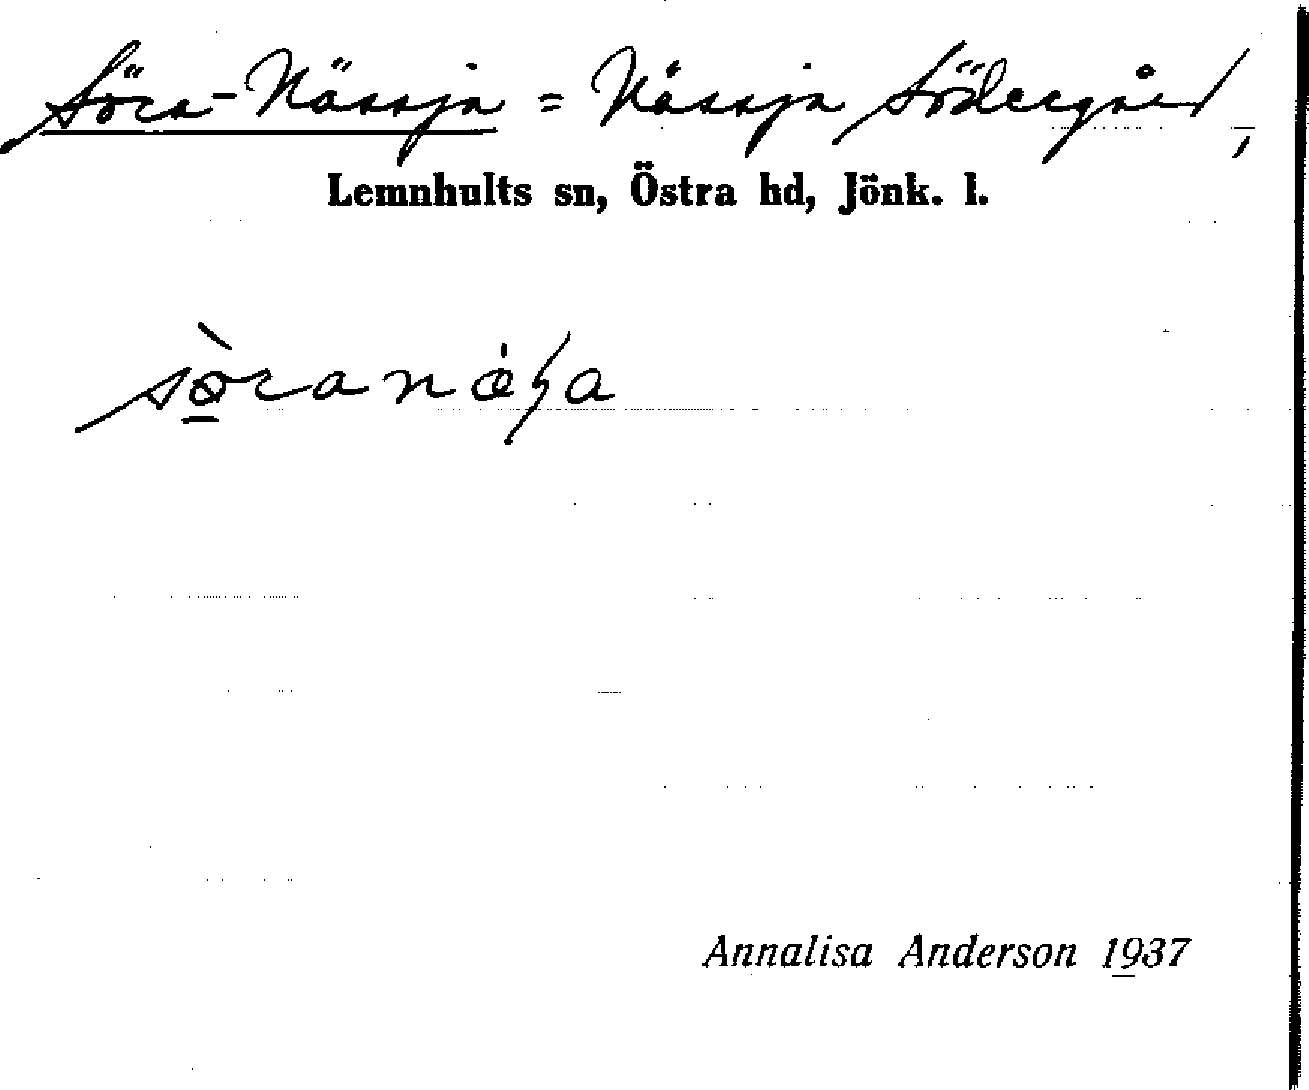 Söra-Nässja = Nässja Södergård,
Lemnhults sn, Östra hd, Jönk. l.
Annalisa Anderson 1937